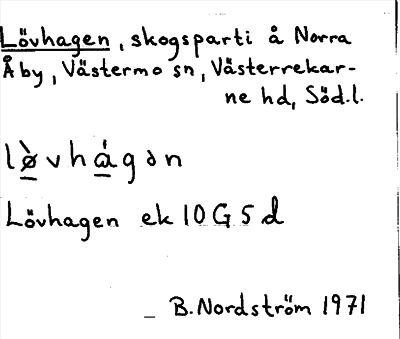 Lövhagen, skogsparti å Norra
Åby, Västermo sn, Västerrekar-
ne hd, Söd.l.
lø̠̀vhá̠gən
Lövhagen ek 10 G 5 d
B. Nordström 1971